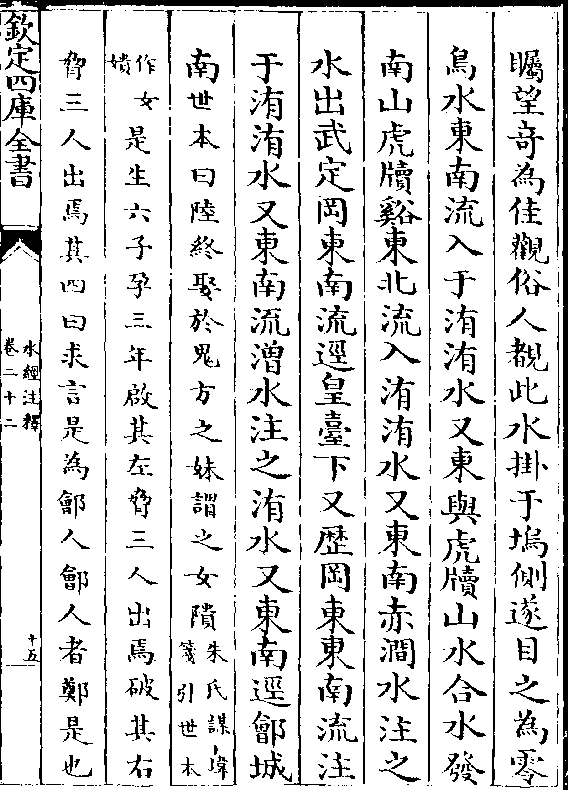 矚望竒為佳觀俗人覩此水掛于塢側遂目之為零
鳥水東南流入于洧洧水又東與虎牘山水合水發
南山虎牘谿東北流入洧洧水又東南赤澗水注之
水出武定岡東南流逕皇臺下又歴岡東東南流注
于洧洧水又東南流潧水注之洧水又東南逕鄶城
南世本曰陸終娶於鬼方之妹謂之女隤朱氏謀㙔
箋引世本
作女
嬇
是生六子孕三年啟其左脅三人出焉破其右
脅三人出焉其四曰求言是為鄶人鄶人者鄭是也
欽定四庫全書
水經注釋
卷二十二
十五